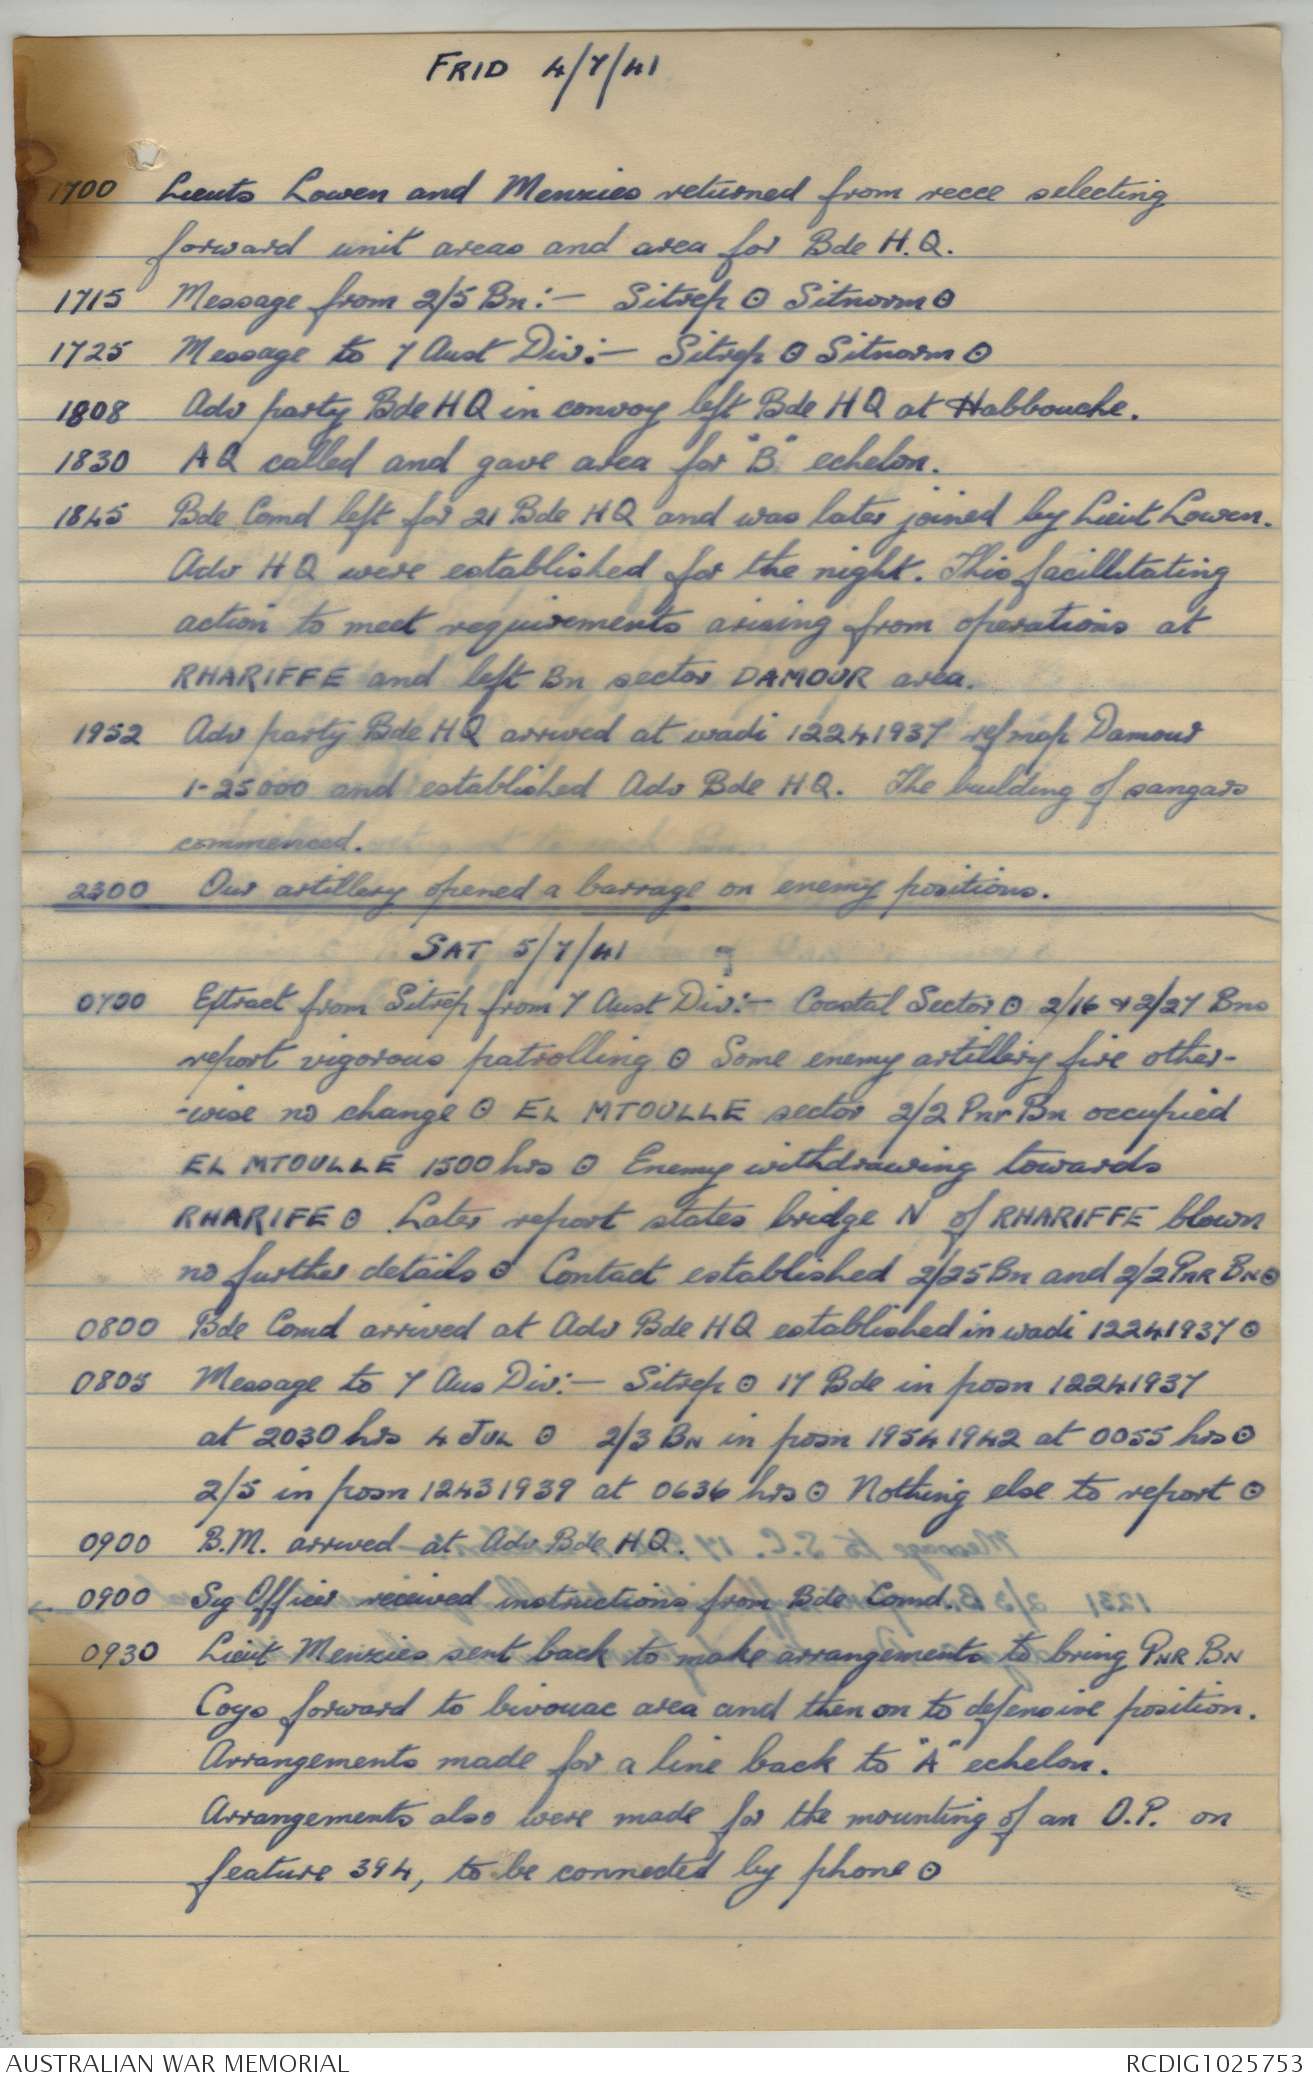 FRID 4/7/41
1700 Lieuts Lowen and Menzies returned from recce selecting
forward unit areas and area for Bde H.Q.
1715 Message from 2/5 Bn:- Sitrep ⊙ Sitnorm ⊙
1725 Message to 7 Aust Div:- Sitrep ⊙ Sitnorm ⊙
1808 Adv party Bde HQ in convoy left Bde HQ at Habbouche.
1830 AQ called and gave area for "B" echelon.
1845 Bde Comd left for 21 Bde HQ and was later joined by Lieut Lowen.
Adv HQ were established for the night. This facillitating
action to meet requirements arising from operations at
RHARIFFE and left Bn sector DAMOUR area.
1952 Adv party Bde HQ arrived at wadi 12241937 ref map Damour
1-25000 and established Adv Bde HQ. The building of sangars
commenced.
2300 Our artillery opened a barrage on enemy positions.
SAT 5/7/41
0700 Extract from Sitrep from 7 Aust Div:- Coastal Sector ⊙ 2/16 & 2/27 Bns
report vigorous patrolling ⊙ Some enemy artillery fire other-
-wise no change ⊙ EL MTOULLE sector 2/2 Pnr Bn occupied
EL MTOULLE 1500 hrs ⊙ Enemy withdrawing towards
RHARIFE ⊙ Later report states bridge N of RHARIFFE blown
no further details ⊙ Contact established 2/25 Bn and 2/2 PNR BN ⊙
0800 Bde Comd arrived at Adv Bde HQ established in wadi 12241937 ⊙
0805 Message to 7 Aus Div:- Sitrep ⊙ 17 Bde in posn 12241937
at 2030 hrs 4 JUL ⊙ 2/3 BN in posn 19541942 at 0055 hrs ⊙
2/5 in posn 12431939 at 0636 hrs ⊙ Nothing else to report ⊙
0900 B.M. arrived at Adv Bde HQ.
0900 Sig Officer received instructions from Bde Comd.
0930 Lieut Menzies sent back to make arrangements to bring PNR BN
Coys forward to bivouac area and then on to defensive position.
Arrangements made for a line back to "A" echelon.
Arrangements also were made for the mounting of an O.P. on
feature 394, to be connected by phone ⊙
AUSTRALIAN WAR MEMORIAL
RCDIG1025753